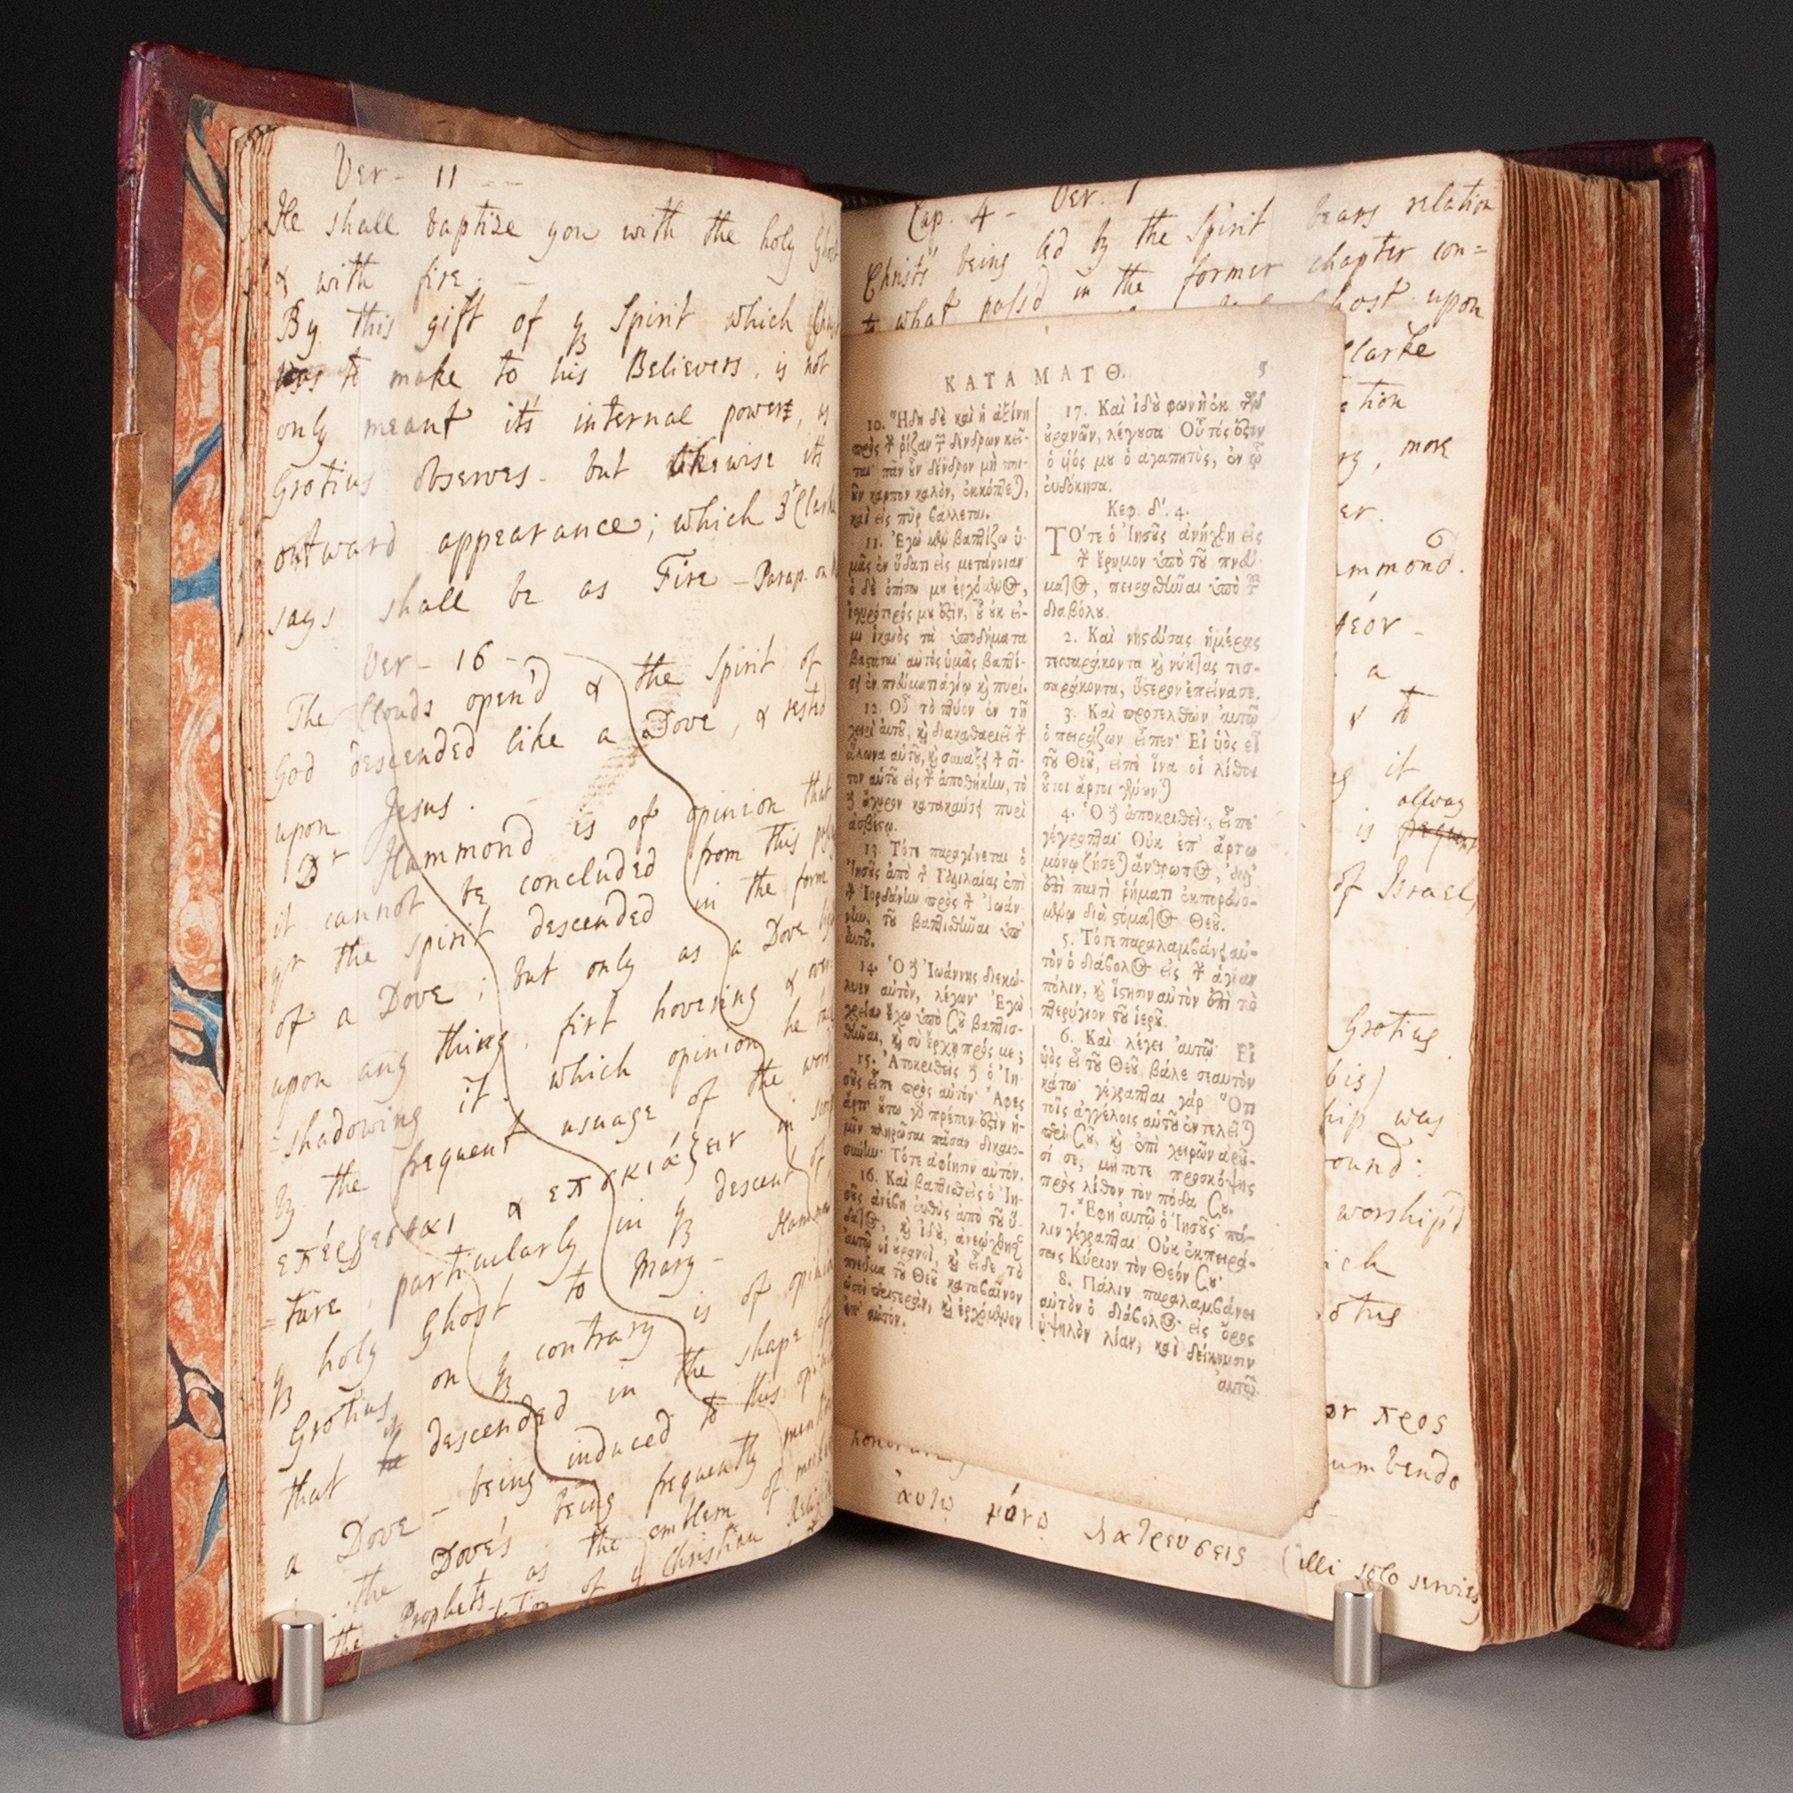 Ver - 11 - -
He shall baptize you with the holy Ghost
& with fire. -
By this gift of ye Spirit which
was to make to his Believers, is not
only meant it's internal power, as
Grotius observes - but likewise its
outward appearance; which Dr Clarke
says shall be as Fire - Parap. on
Ver - 16 -
The Clouds open'd & the Spirit of
God descended like a Dove, & rested
upon Jesus. -
Dr Hammond is of opinion that
it cannot be concluded from this
yt the spirit descended in the form
of a Dove; but only as a Dove
upon any thing, first hovering & over
=shadowing it. which opinion he
by the frequent usuage of the word
επέρχεσθαι & επισκιάζειν in scrip
=ture, particularly in ye descent of
ye holy Ghost to Mary - Hammond
Grotius on ye contrary is of opinion
that it descended in the shape of
a Dove - being induced to this opinion
the Dove's being frequently
the Prophets as the emblem of
of ye Christian
Cap. 4 - Ver. 1
Christ's being led by the Spirit bears relation
to what pass'd in the former chapter con=
Ghost upon
Clarke
more
er.
ammond.
a
& to
it
allway
is
of Israel,
Grotius.
bis)
ship was
ound:
worship'd
ich
otius
or προς
umbendo
αυτῳ μόνῳ λατρεύσεις (illi solo servies
ΚΑΤΑ ΜΑΤΘ. 5
10. Ἤδη δὲ καὶ ἡ ἀξίνη
πρὸς τὴν ῥίζαν τῶν δένδρων κεῖ-
ται· πᾶν οὖν δένδρον μὴ ποι-
οῦν καρπὸν καλὸν, ἐκκόπτεται,
καὶ εἰς πῦρ βάλλεται.
11. Ἐγὼ μὲν βαπτίζω ὑ-
μᾶς ἐν ὕδατι εἰς μετάνοιαν·
ὁ δὲ ὀπίσω μου ἐρχόμενος,
ἰσχυρότερός μου ἐστὶν, οὗ οὐκ εἰ-
μὶ ἱκανὸς τὰ ὑποδήματα
βαστάσαι· αὐτὸς ὑμᾶς βαπτί-
σει ἐν πνεύματι ἁγίῳ καὶ πυρί.
12. Οὗ τὸ πτύον ἐν τῇ
χειρὶ αὐτοῦ, καὶ διακαθαριεῖ τὴν
ἅλωνα αὐτοῦ, καὶ συνάξει τὸν σῖ-
τον αὐτοῦ εἰς τὴν ἀποθήκην, τὸ
δὲ ἄχυρον κατακαύσει πυρὶ
ἀσβέστῳ.
13. Τότε παραγίνεται ὁ
Ἰησοῦς ἀπὸ τῆς Γαλιλαίας ἐπὶ
τὸν Ἰορδάνην πρὸς τὸν Ἰωάν-
νην, τοῦ βαπτισθῆναι ὑπ'
αὐτοῦ.
14. Ὁ δὲ Ἰωάννης διεκώ-
λυεν αὐτὸν, λέγων· Ἐγὼ
χρείαν ἔχω ὑπὸ σοῦ βαπτισ-
θῆναι, καὶ σὺ ἔρχῃ πρός με;
15. Ἀποκριθεὶς δὲ ὁ Ἰη-
σοῦς εἶπε πρὸς αὐτόν· Ἄφες
ἄρτι· οὕτω γὰρ πρέπον ἐστὶν ἡ-
μῖν πληρῶσαι πᾶσαν δικαιο-
σύνην· Τότε ἀφίησιν αὐτόν.
16. Καὶ βαπτισθεὶς ὁ Ἰη-
σοῦς ἀνέβη εὐθὺς ἀπὸ τοῦ ὕ-
δατος, καὶ ἰδοὺ, ἀνεῴχθησαν
αὐτῷ οἱ οὐρανοὶ, καὶ εἶδε τὸ
πνεῦμα τοῦ Θεοῦ καταβαῖνον
ὡσεὶ περιστερὰν, καὶ ἐρχόμενον
ἐπ' αὐτόν.
17. Καὶ ἰδοὺ φωνὴ ἐκ τῶν
οὐρανῶν, λέγουσα· Οὗτός ἐστιν
ὁ υἱός μου ὁ ἀγαπητὸς, ἐν ᾧ
εὐδόκησα.
Κεφ. δ'. 4.
ΤΟ'τε ὁ Ἰησοῦς ἀνήχθη εἰς
τὴν ἔρημον ὑπὸ τοῦ πνεύ-
ματος, πειρασθῆναι ὑπὸ τοῦ
διαβόλου.
2. Καὶ νηστεύσας ἡμέρας
τεσσαράκοντα καὶ νύκτας τεσ-
σαράκοντα, ὕστερον ἐπείνασε.
3. Καὶ προσελθὼν αὐτῷ
ὁ πειράζων εἶπεν· Εἰ υἱὸς εἶ
τοῦ Θεοῦ, εἰπὲ ἵνα οἱ λίθοι
οὗτοι ἄρτοι γένωνται
4. Ὁ δὲ ἀποκριθεὶς, εἶπε·
γέγραπται· Οὐκ ἐπ' ἄρτῳ
μόνῳ ζήσεται ἄνθρωπος, ἀλλ'
ἐπὶ παντὶ ῥήματι ἐκπορευο-
μένῳ διὰ στόματος Θεοῦ.
5. Τότε παραλαμβάνει αὐ-
τὸν ὁ διάβολος εἰς τὴν ἁγίαν
πόλιν, καὶ ἵστησιν αὐτὸν ἐπὶ τὸ
πτερύγιον τοῦ ἱεροῦ.
6. Καὶ λέγει αὐτῷ· Εἰ
υἱὸς εἶ τοῦ Θεοῦ, βάλε σεαυτὸν
κάτω· γέγραπται γὰρ Ὅτι
τοῖς ἀγγέλοις αὐτοῦ ἐντελεῖται
περὶ σοῦ, καὶ ἐπὶ χειρῶν ἀροῦ-
σί σε, μήποτε προσκόψῃς
πρὸς λίθον τὸν πόδα σου.
7. Ἔφη αὐτῷ ὁ Ἰησοῦς· πά-
λιν γέγραπται· Οὐκ ἐκπειρά-
σεις Κύριον τὸν Θεόν σου.
8. Πάλιν παραλαμβάνει
αὐτὸν ὁ διάβολος εἰς ὄρος
ὑψηλὸν λίαν, καὶ δείκνυσιν
αὐτῷ